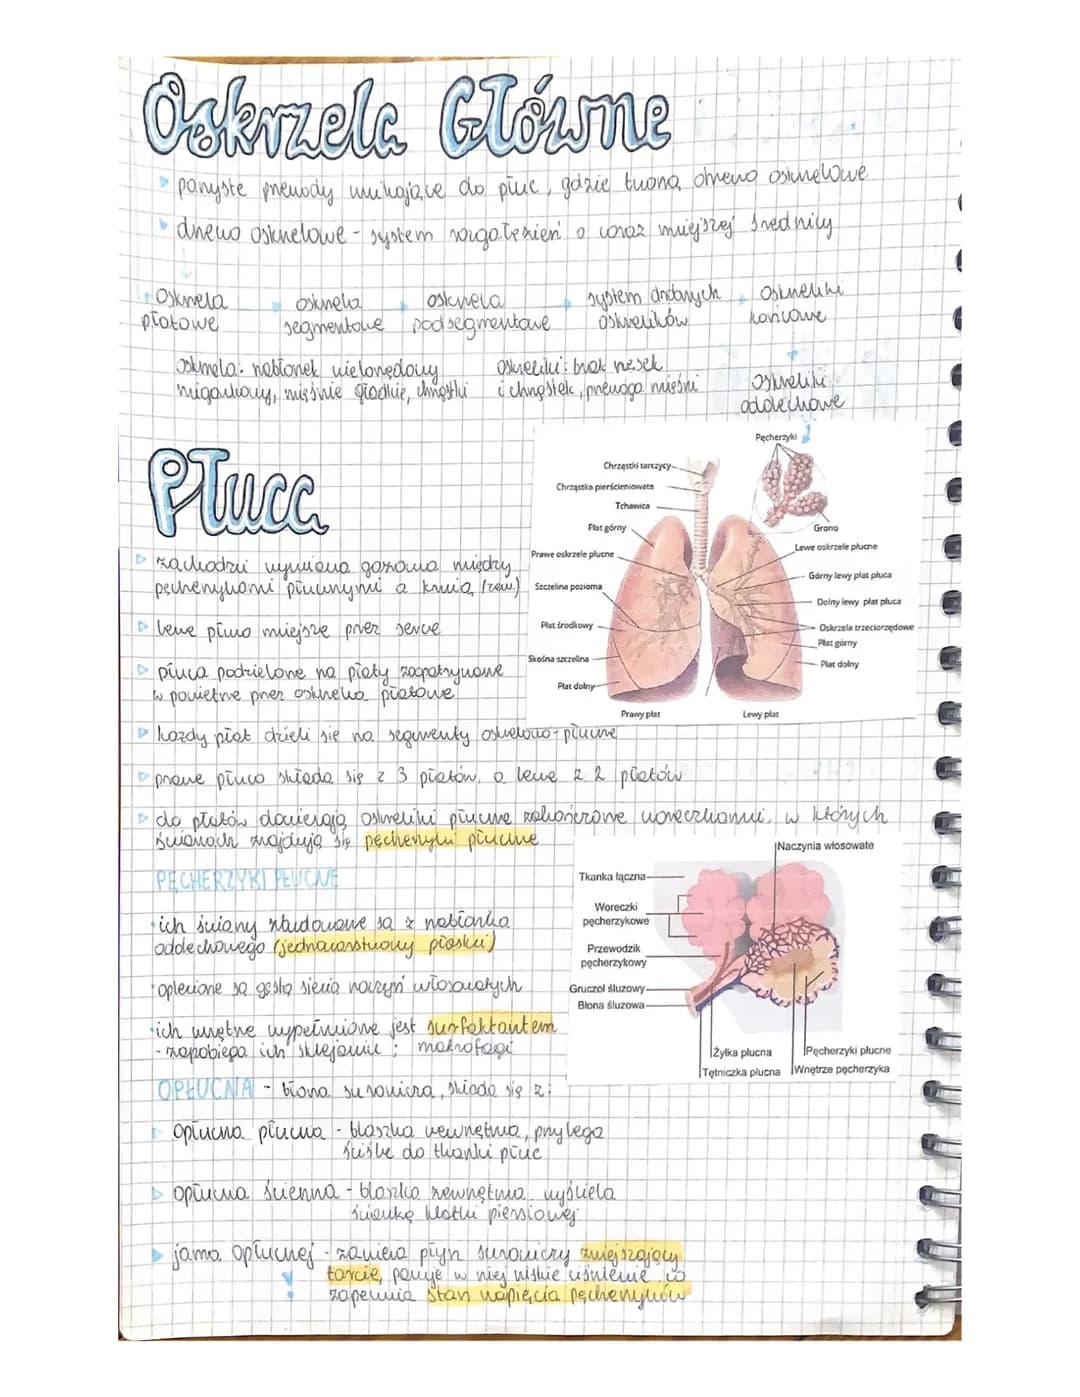 Oskrzela Główne
parzyste przewody wnikające do płuc, gdzie tworzą drzewo oskrzelowe
drzewo oskrzelowe - system rozgałęzień o coraz mniejszej średnicy
oskrzela płatowe
oskrzela segmentowe
oskrzela podsegmentowe
system drobnych oskrzelików
oskrzeliki końcowe
oskrzela: nabłonek wielorzędowy
migawkowy, mięśnie gładkie, chrząstki
oskrzeliki: brak rzęsek
i chrząstek, przewaga mięśni
oskrzeliki
oddechowe
Płuca
Pęcherzyki
Chrząstki tarczycy
Chrząstka pierścieniowata
Tchawica
Płat górny
Grono
Prawe oskrzele płucne
Lewe oskrzele płucne
Szczelina pozioma
Górny lewy płat płuca
Dolny lewy płat płuca
Płat środkowy
Oskrzela trzeciorzędowe
Płat górny
Skośna szczelina
Płat dolny
Płat dolny
Prawy płat
Lewy płat
zachodzi wymiana gazowa między
pęcherzykami płucnymi a krwią (zew.)
lewe płuco mniejsze przez serce
płuca podzielone na płaty zaopatrywane
w powietrze przez oskrzela płatowe
każdy płat dzieli się na segmenty oskrzelowo-płucne
prawe płuco składa się z 3 płatów, a lewe z 2 płatów
do płatów docierają oskrzeliki płucne zakończone woreczkami, w których
ścianach znajdują się pęcherzyki płucne
PĘCHERZYKI PŁUCNE
ich ściany zbudowane są z nabłonka
oddechowego (jednowarstwowy płaski)
oplecione są gęstą siecią naczyń włosowatych
ich wnętrze wypełnione jest surfaktantem
- zapobiega ich sklejaniu ; makrofagi
Naczynia włosowate
Tkanka łączna
Woreczki
pęcherzykowe
Przewodzik
pęcherzykowy
Gruczoł śluzowy
Błona śluzowa
Żyłka płucna
Pęcherzyki płucne
Tętniczka płucna
Wnętrze pęcherzyka
OPŁUCNA - błona surowicza, składa się z:
opłucna płucna - blaszka wewnętrzna, przylega
ściśle do tkanki płuc
opłucna ścienna - blaszka zewnętrzna, wyściela
ściankę klatki piersiowej
jama opłucnej - zawiera płyn surowiczy zmiejszający
tarcie, panuje w niej niskie ciśnienie, co
zapewnia stan napięcia pęcherzyków